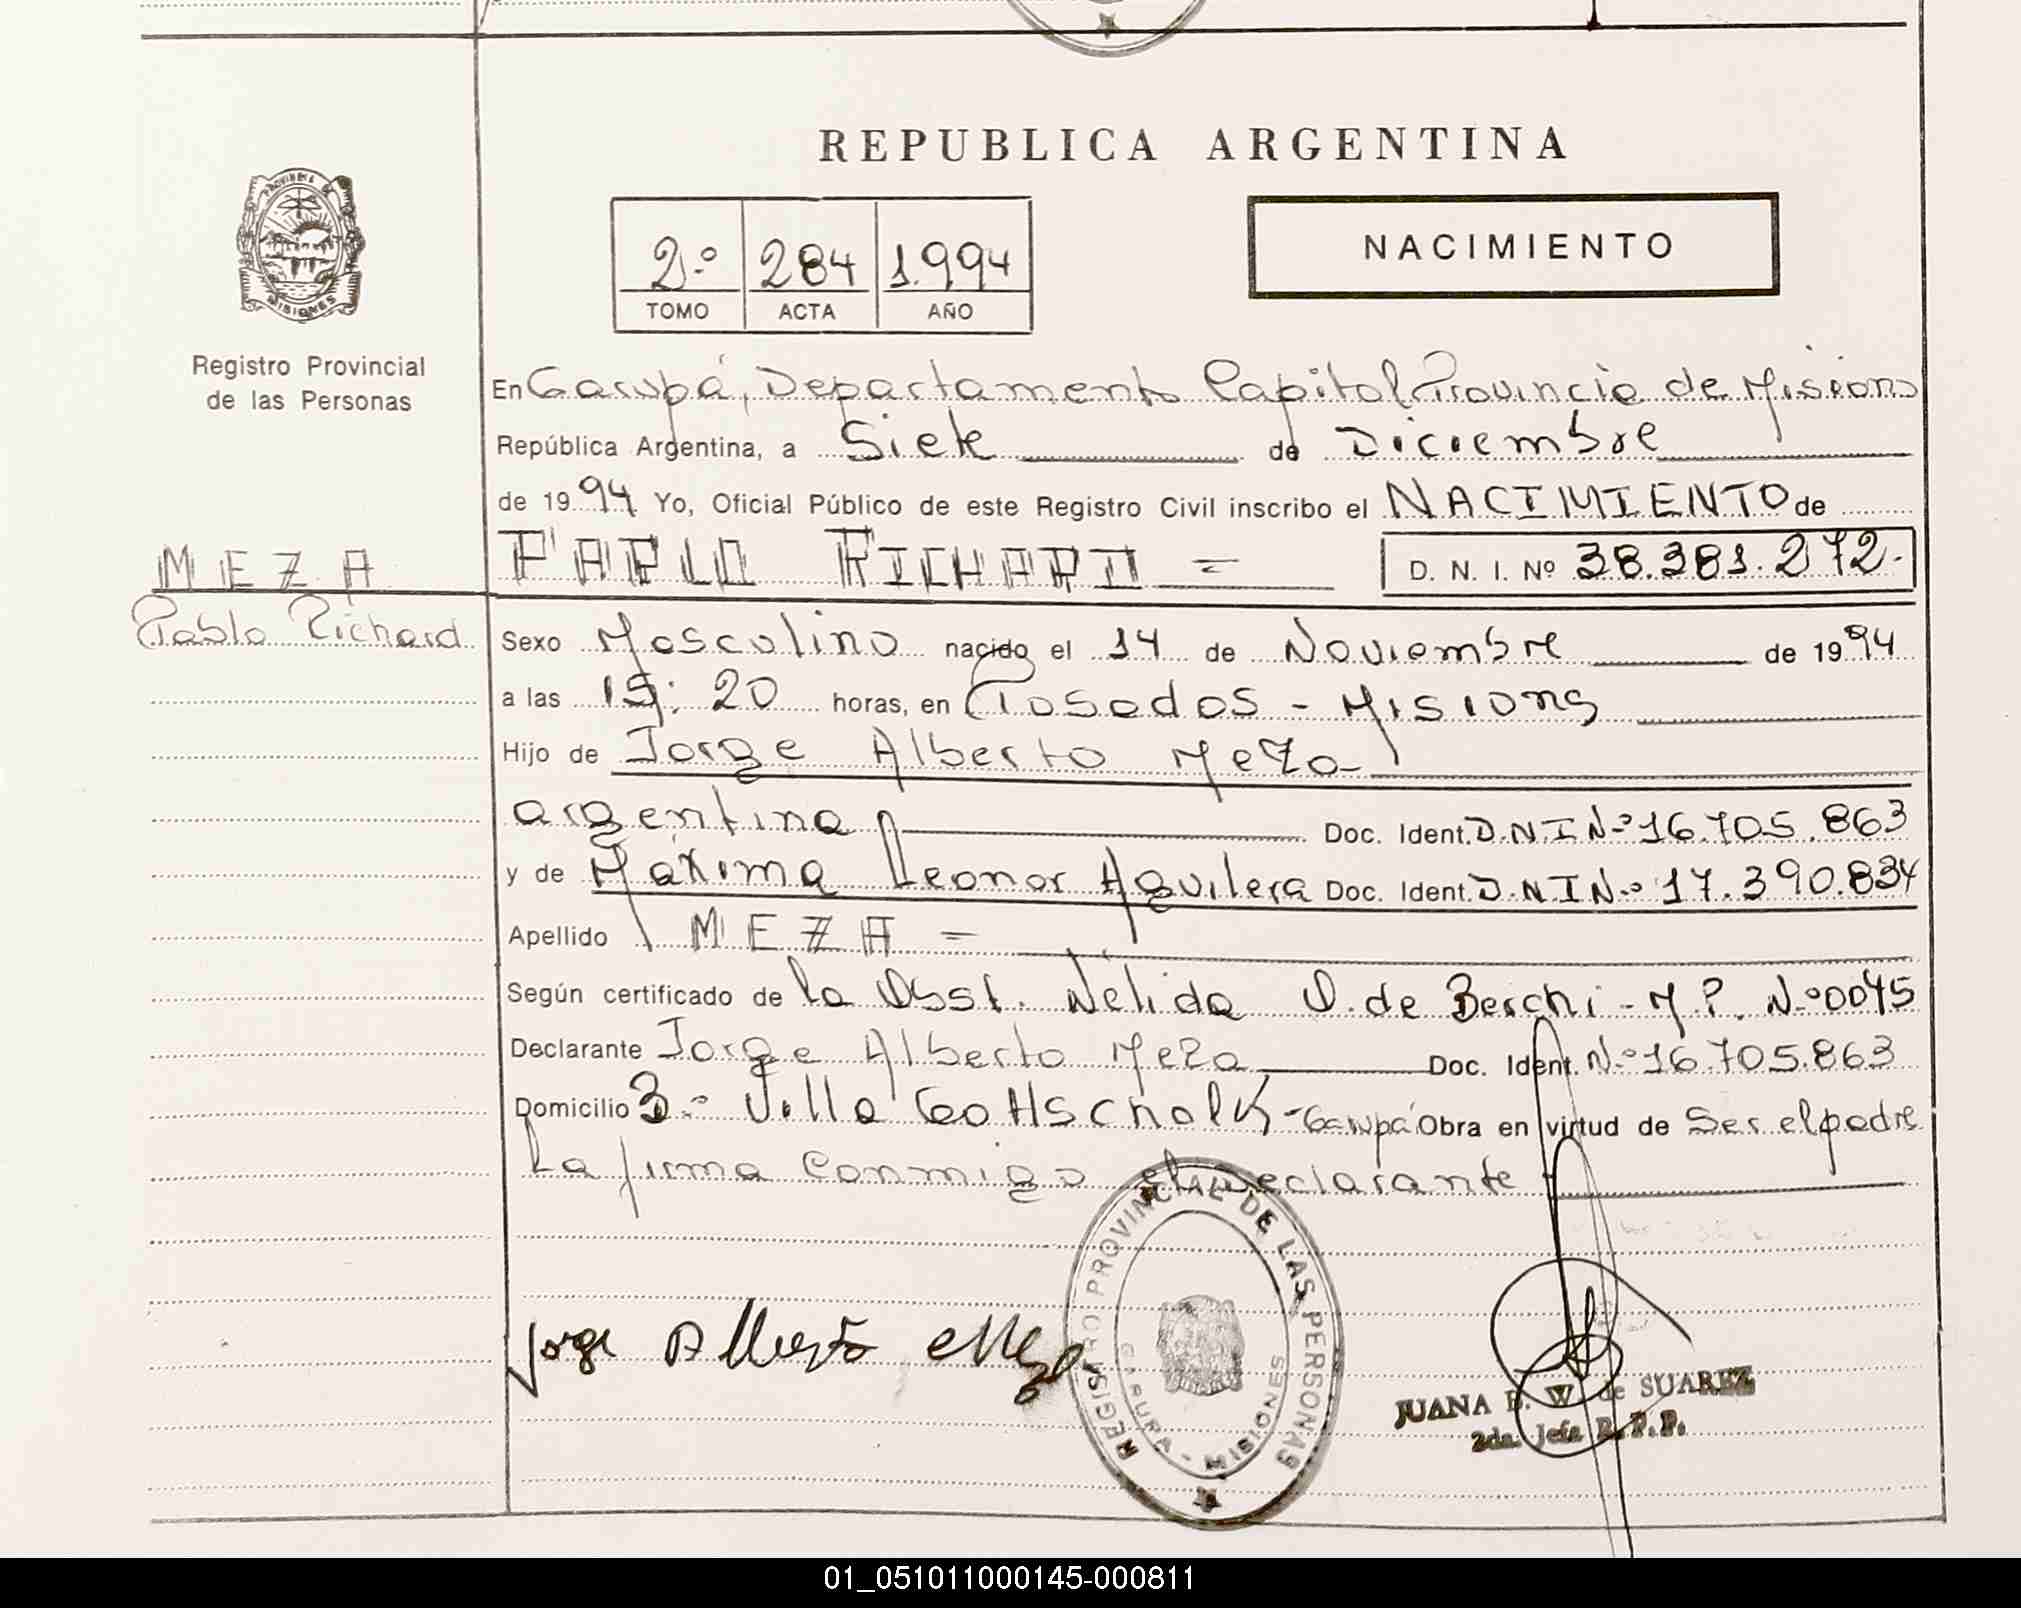 REPUBLICA ARGENTINA
PROVINCIA DE
MISIONES
Registro Provincial
de las Personas
2.º 284 1.994
TOMO ACTA AÑO
NACIMIENTO
En Garupá, Departamento Capital Provincia de Misiones
República Argentina, a Siete de Diciembre
de 1994 Yo, Oficial Público de este Registro Civil inscribo el NACIMIENTO de
MEZA
PABLO RICHARD = D. N. I. Nº 38.381.272.
Pablo Richard
Sexo Masculino nacido el 14 de Noviembre de 1994
a las 15:20 horas, en Posadas - Misiones
Hijo de Jorge Alberto Meza
argentina Doc. Ident. D.N.I Nº 16.705.863
y de Máxima Leonor Aguilera Doc. Ident. D.N.I Nº 17.390.834
Apellido MEZA =
Según certificado de la Obst. Nélida O. de Berchi - M.P. Nº 0045
Declarante Jorge Alberto Meza Doc. Ident. Nº 16.705.863
Domicilio 3.º Villa Gottschalk - Garupá Obra en virtud de Ser el padre
La firma conmigo el declarante
Jorge Alberto Meza
REGISTRO PROVINCIAL DE LAS PERSONAS
GARUPA - MISIONES
JUANA B. W. de SUAREZ
2da. Jefa R.P.P.
01_051011000145-000811